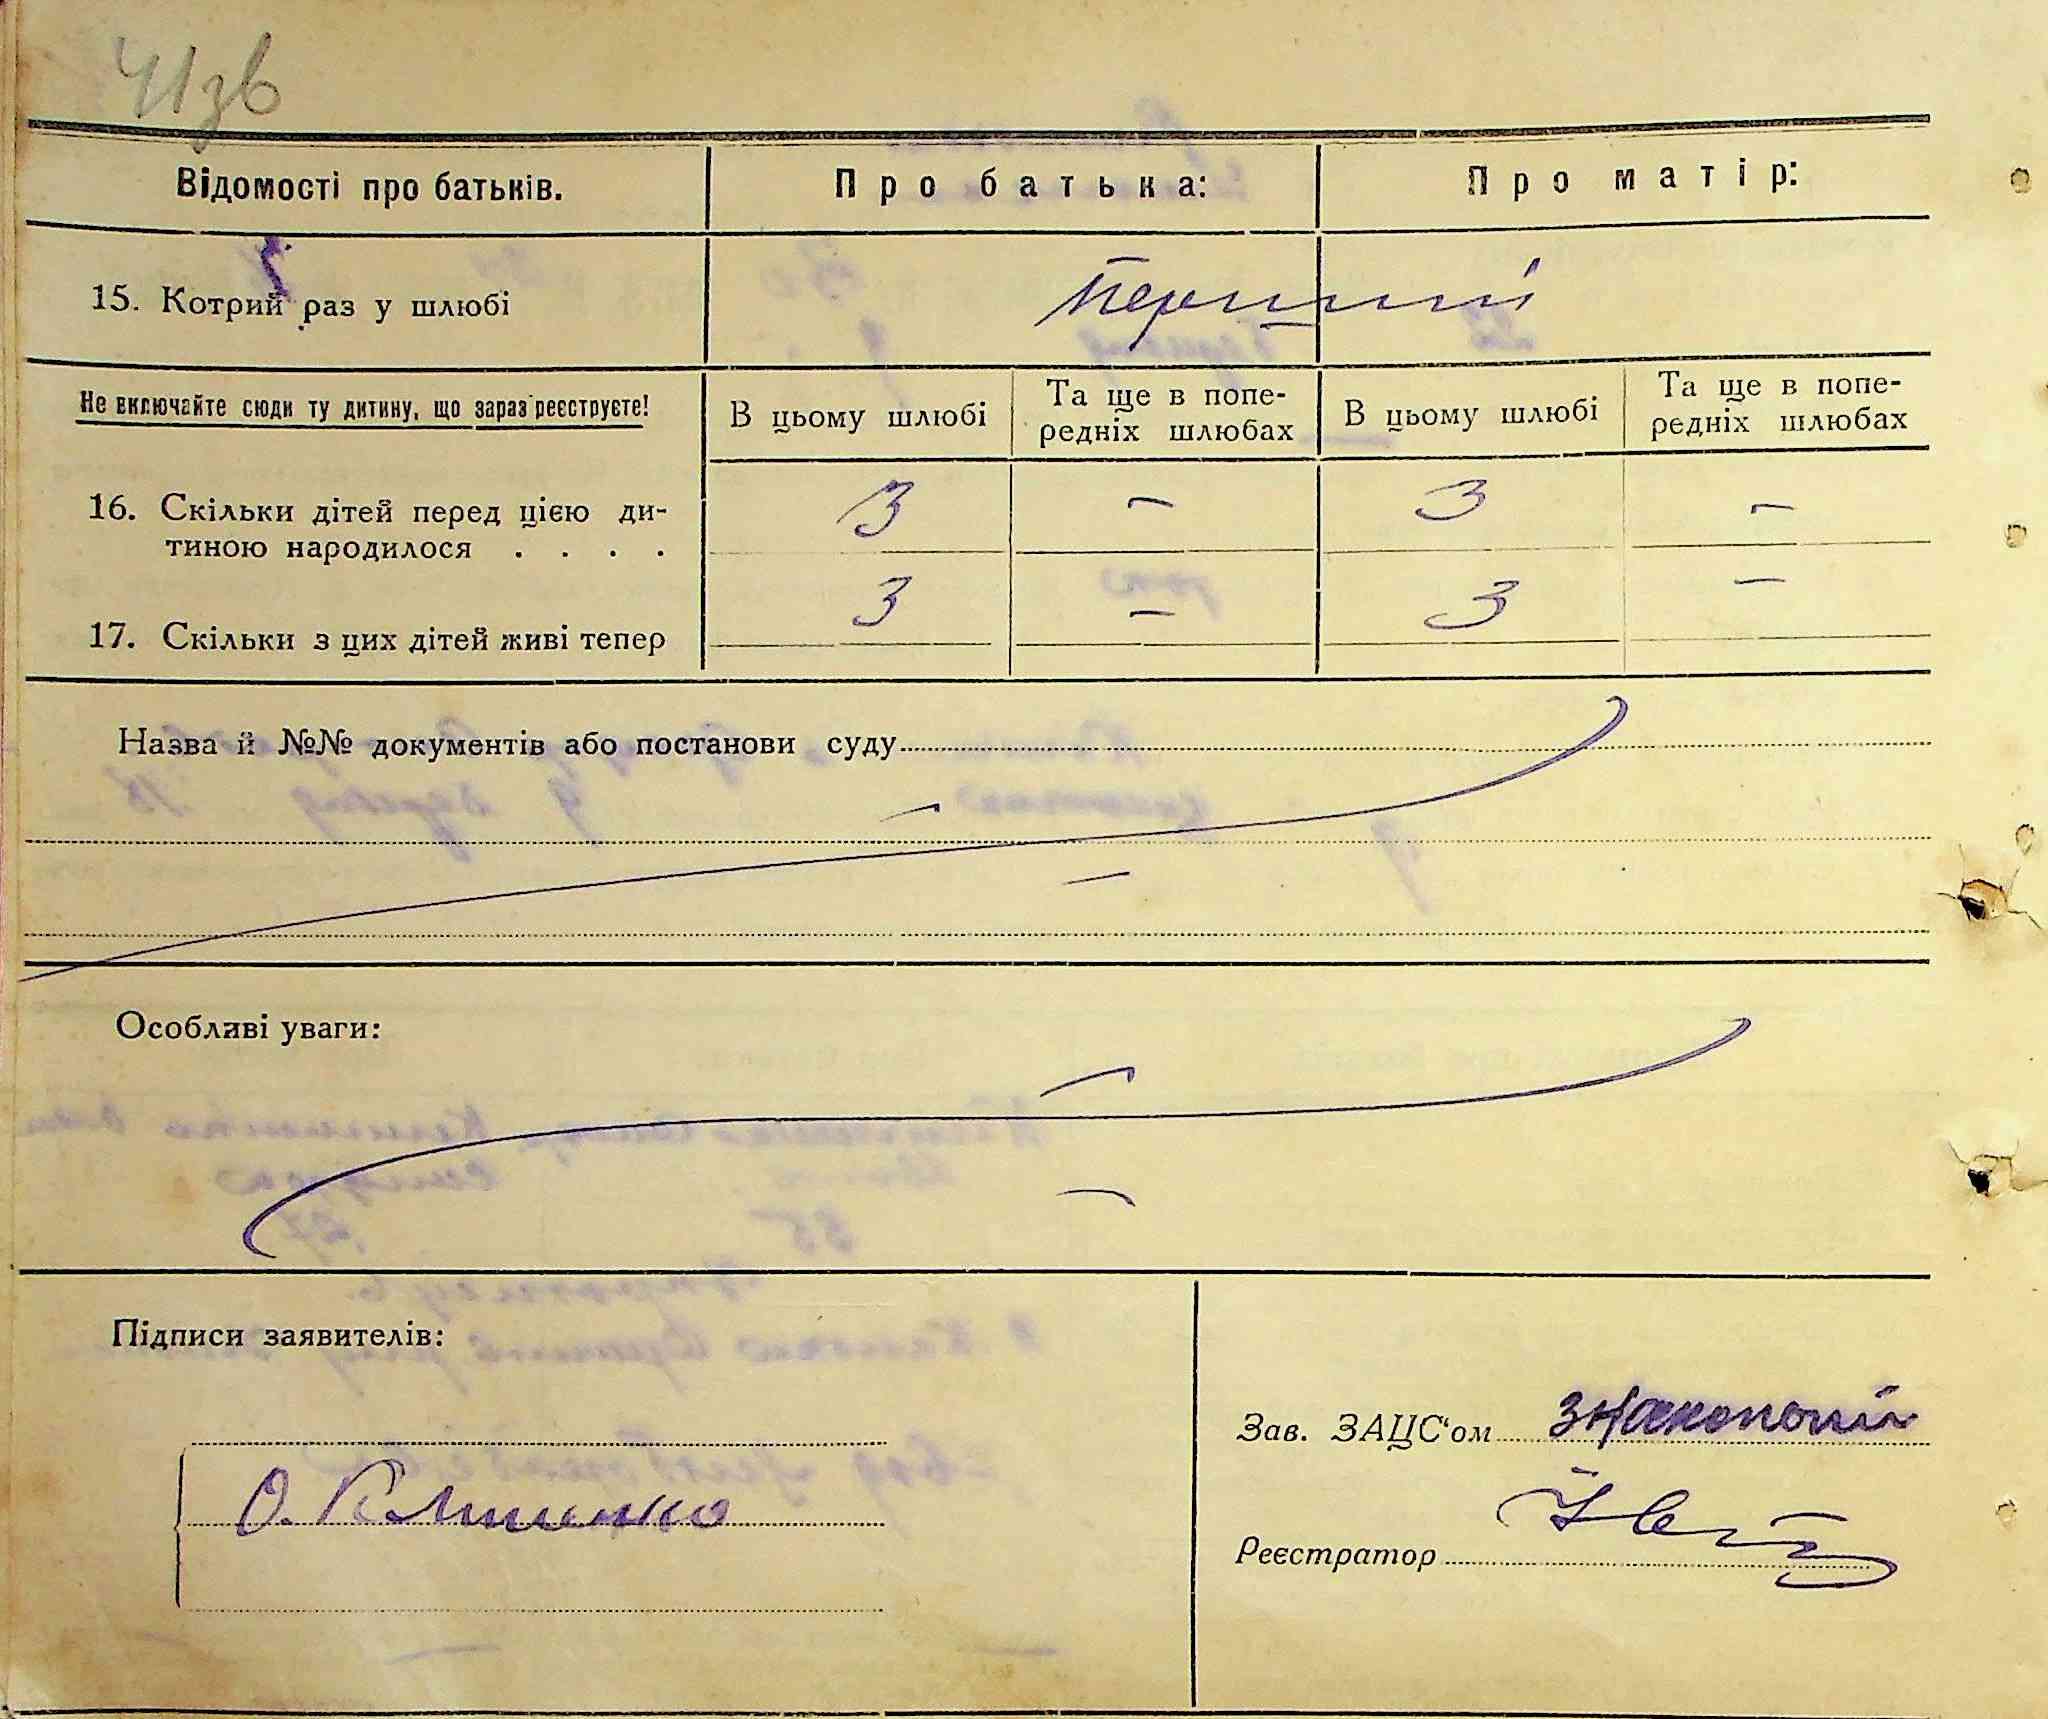 41зв
Відомості про батьків. Про батька: Про матір:
15. Котрий раз у шлюбі перший
Не включайте сюди ту дитину, що зараз реєструєте! В цьому шлюбі Та ще в попе- В цьому шлюбі Та ще в попе-
редніх шлюбах редніх шлюбах
16. Скільки дітей перед цією ди- 3 – 3 –
тиною народилося . . . .
17. Скільки з цих дітей живі тепер 3 – 3 –
Назва й №№ документів або постанови суду
Особливі уваги:
Підписи заявителів:
Зав. ЗАЦС'ом
О. Клименко
Реєстратор